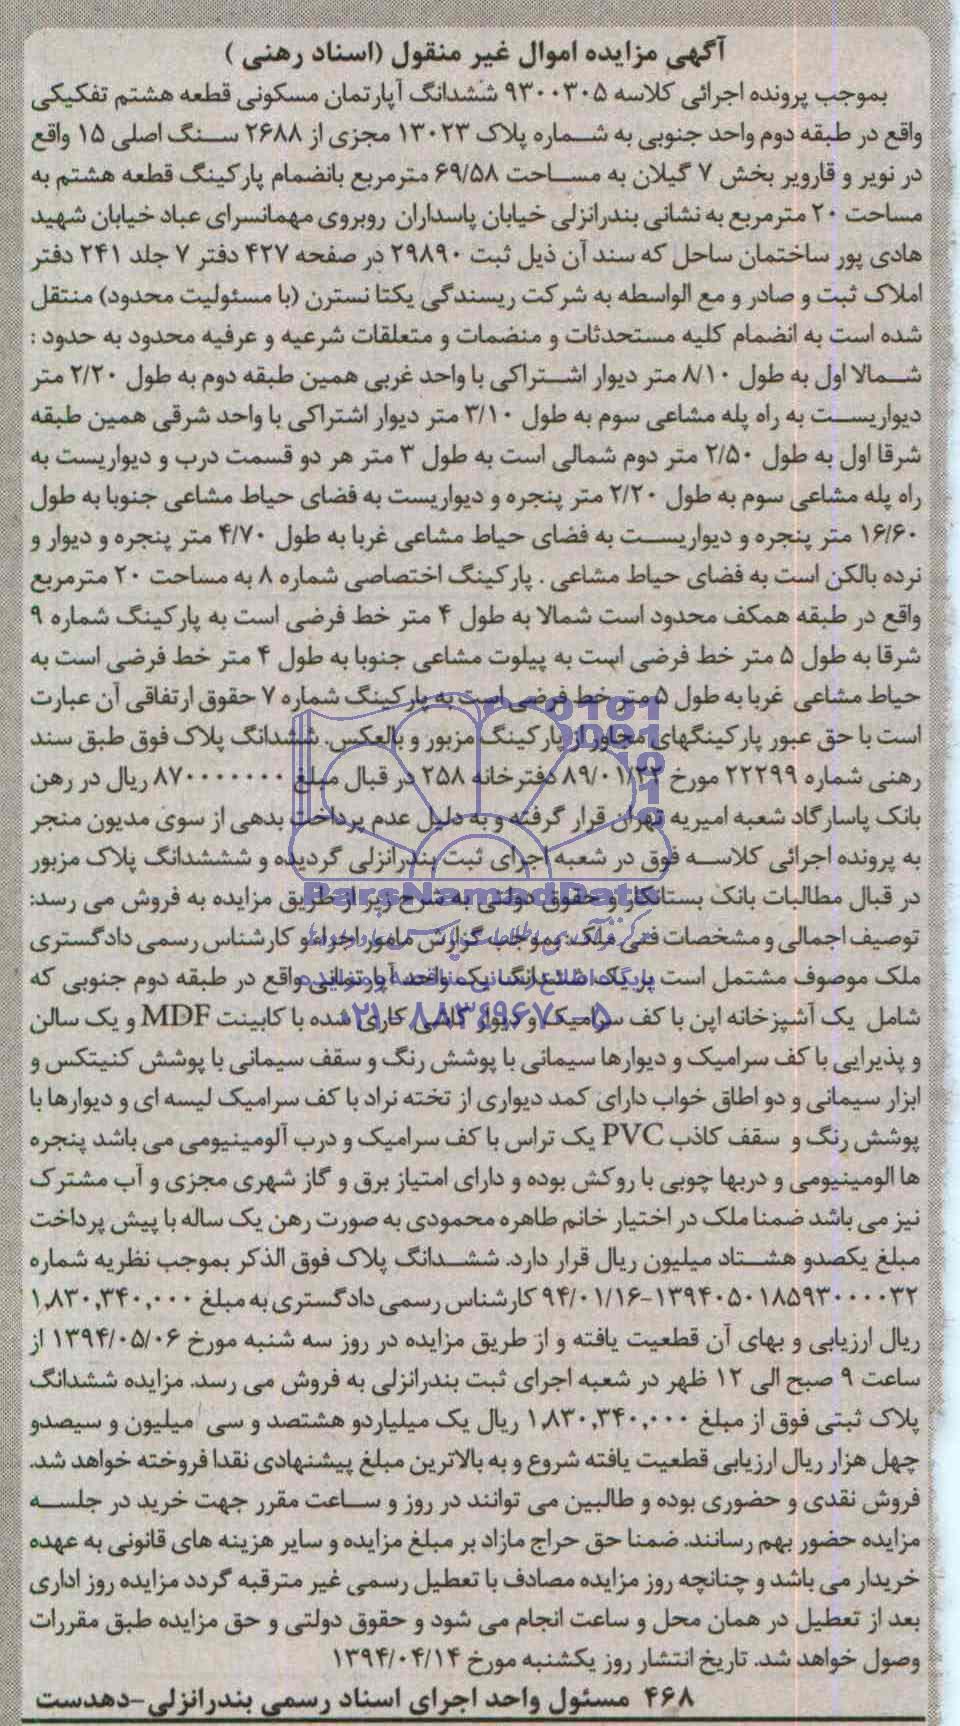 آگهی مزایده اموال غیر منقول (اسناد رهنی )
بموجب پرونده اجرائی کلاسه ۹۳۰۰۳۰۵ ششدانگ آپارتمان مسکونی قطعه هشتم تفکیکی
واقع در طبقه دوم واحد جنوبی به شماره پلاک ۱۳۰۲۳ مجزی از ۲۶۸۸ سنگ اصلی ۱۵ واقع
در نویر و قارویر بخش ۷ گیلان به مساحت ۶۹/۵۸ مترمربع بانضمام پارکینگ قطعه هشتم به
مساحت ۲۰ مترمربع به نشانی بندرانزلی خیابان پاسداران روبروی مهمانسرای عباد خیابان شهید
هادی پور ساختمان ساحل که سند آن ذیل ثبت ۲۹۸۹۰ در صفحه ۴۲۷ دفتر ۷ جلد ۲۴۱ دفتر
املاک ثبت و صادر و مع الواسطه به شرکت ریسندگی یکتا نسترن (با مسئولیت محدود) منتقل
شده است به انضمام کلیه مستحدثات و منضمات و متعلقات شرعیه و عرفیه محدود به حدود :
شمالا اول به طول ۸/۱۰ متر دیوار اشتراکی با واحد غربی همین طبقه دوم به طول ۲/۲۰ متر
دیواریست به راه پله مشاعی سوم به طول ۳/۱۰ متر دیوار اشتراکی با واحد شرقی همین طبقه
شرقا اول به طول ۲/۵۰ متر دوم شمالی است به طول ۳ متر هر دو قسمت درب و دیواریست به
راه پله مشاعی سوم به طول ۲/۲۰ متر پنجره و دیواریست به فضای حیاط مشاعی جنوبا به طول
۱۶/۶۰ متر پنجره و دیواریست به فضای حیاط مشاعی غربا به طول ۴/۷۰ متر پنجره و دیوار و
نرده بالکن است به فضای حیاط مشاعی . پارکینگ اختصاصی شماره ۸ به مساحت ۲۰ مترمربع
واقع در طبقه همکف محدود است شمالا به طول ۴ متر خط فرضی است به پارکینگ شماره ۹
شرقا به طول ۵ متر خط فرضی است به پیلوت مشاعی جنوبا به طول ۴ متر خط فرضی است به
حیاط مشاعی غربا به طول ۵ متر خط فرضی است به پارکینگ شماره ۷ حقوق ارتفاقی آن عبارت
است با حق عبور پارکینگهای مجاور از پارکینگ مزبور و بالعکس. ششدانگ پلاک فوق طبق سند
رهنی شماره ۲۲۲۹۹ مورخ ۸۹/۰۱/۲۲ دفترخانه ۲۵۸ در قبال مبلغ ۸۷۰۰۰۰۰۰۰ ریال در رهن
بانک پاسارگاد شعبه امیریه تهران قرار گرفته و به دلیل عدم پرداخت بدهی از سوی مدیون منجر
به پرونده اجرائی کلاسه فوق در شعبه اجرای ثبت بندرانزلی گردیده و شششدانگ پلاک مزبور
در قبال مطالبات بانک بستانکار و حقوق دولتی به شرح زیر از طریق مزایده به فروش می رسد:
توصیف اجمالی و مشخصات فنی ملک: بموجب گزارش مامور اجرا و کارشناس رسمی دادگستری
ملک موصوف مشتمل است بر یک ششدانگ یک واحد آپارتمانی واقع در طبقه دوم جنوبی که
شامل یک آشپزخانه اپن با کف سرامیک و دیوار کاشی کاری شده با کابینت MDF و یک سالن
و پذیرایی با کف سرامیک و دیوارها سیمانی با پوشش رنگ و سقف سیمانی با پوشش کنیتکس و
ابزار سیمانی و دو اطاق خواب دارای کمد دیواری از تخته نراد با کف سرامیک لیسه ای و دیوارها با
پوشش رنگ و سقف کاذب PVC یک تراس با کف سرامیک و درب آلومینیومی می باشد پنجره
ها الومینیومی و دربها چوبی با روکش بوده و دارای امتیاز برق و گاز شهری مجزی و آب مشترک
نیز می باشد ضمنا ملک در اختیار خانم طاهره محمودی به صورت رهن یک ساله با پیش پرداخت
مبلغ یکصدو هشتاد میلیون ریال قرار دارد. ششدانگ پلاک فوق الذکر بموجب نظریه شماره
۱۳۹۴۰۵۰۱۸۵۹۳۰۰۰۰۳۲-۹۴/۰۱/۱۶ کارشناس رسمی دادگستری به مبلغ ۱,۸۳۰,۳۴۰,۰۰۰
ریال ارزیابی و بهای آن قطعیت یافته و از طریق مزایده در روز سه شنبه مورخ ۱۳۹۴/۰۵/۰۶ از
ساعت ۹ صبح الی ۱۲ ظهر در شعبه اجرای ثبت بندرانزلی به فروش می رسد. مزایده ششدانگ
پلاک ثبتی فوق از مبلغ ۱,۸۳۰,۳۴۰,۰۰۰ ریال یک میلیاردو هشتصد و سی میلیون و سیصدو
چهل هزار ریال ارزیابی قطعیت یافته شروع و به بالاترین مبلغ پیشنهادی نقدا فروخته خواهد شد.
فروش نقدی و حضوری بوده و طالبین می توانند در روز و ساعت مقرر جهت خرید در جلسه
مزایده حضور بهم رسانند. ضمنا حق حراج مازاد بر مبلغ مزایده و سایر هزینه های قانونی به عهده
خریدار می باشد و چنانچه روز مزایده مصادف با تعطیل رسمی غیر مترقبه گردد مزایده روز اداری
بعد از تعطیل در همان محل و ساعت انجام می شود و حقوق دولتی و حق مزایده طبق مقررات
وصول خواهد شد. تاریخ انتشار روز یکشنبه مورخ ۱۳۹۴/۰۴/۱۴
۴۶۸ مسئول واحد اجرای اسناد رسمی بندرانزلی-دهدست
ParsNamadData
۰۲۱-۸۸۳۴۹۶۷۰-۵